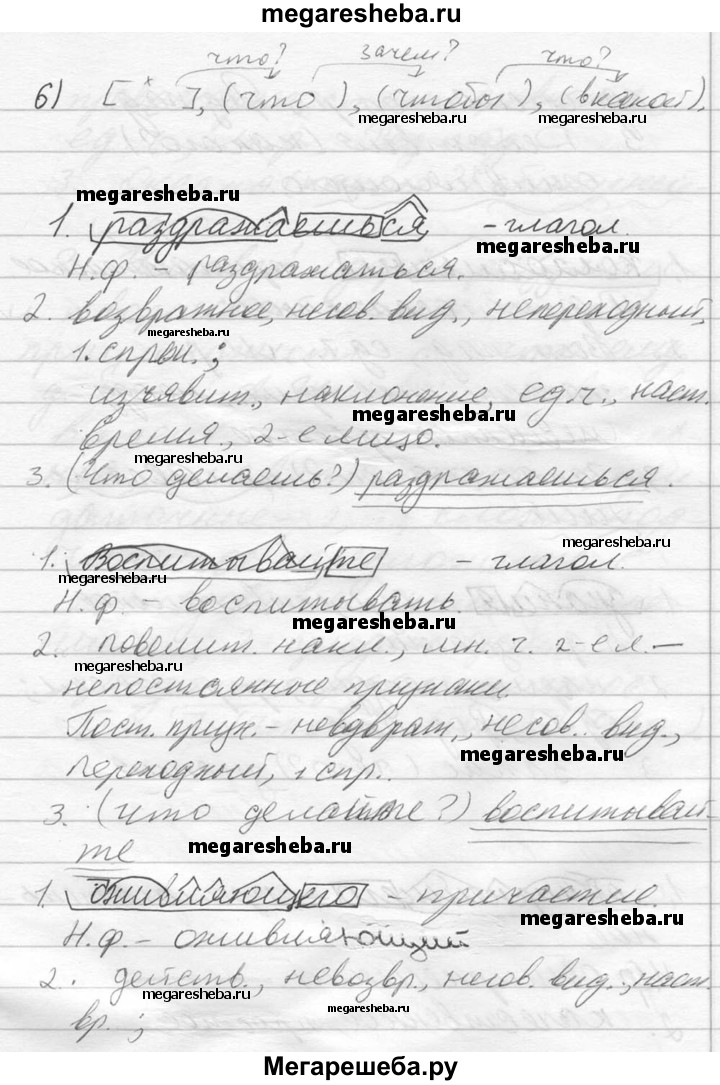 megaresheba.ru
что? зачем? что?
6) [ × ], (что ), (чтобы ), (в какой).
megaresheba.ru megaresheba.ru
megaresheba.ru
1. раздражаешься - глагол.
megaresheba.ru
Н.ф. - раздражаться.
2. возвратное, несов. вид., непереходный,
megaresheba.ru
1. спряж.;
изъявит., наклонение, ед.ч., наст.
megaresheba.ru
время, 2-е лицо.
megaresheba.ru
3. (Что делаешь?) раздражаешься.
megaresheba.ru
1. Воспитывайте - глагол.
megaresheba.ru
Н.ф. - воспитывать.
megaresheba.ru
2. повелит. накл., мн. ч. 2-е л. -
megaresheba.ru
непостоянные признаки.
Пост. призн. - невозврат., несов. вид.,
megaresheba.ru
переходный, 1 спр..
3. (что делайте?) воспитывай-
megaresheba.ru
те
1. оживляющего - причастие.
megaresheba.ru
Н.ф. - оживляющий
2. действ., невозвр., несов. вид., наст.
megaresheba.ru megaresheba.ru
вр.;
Мегарешеба.ру